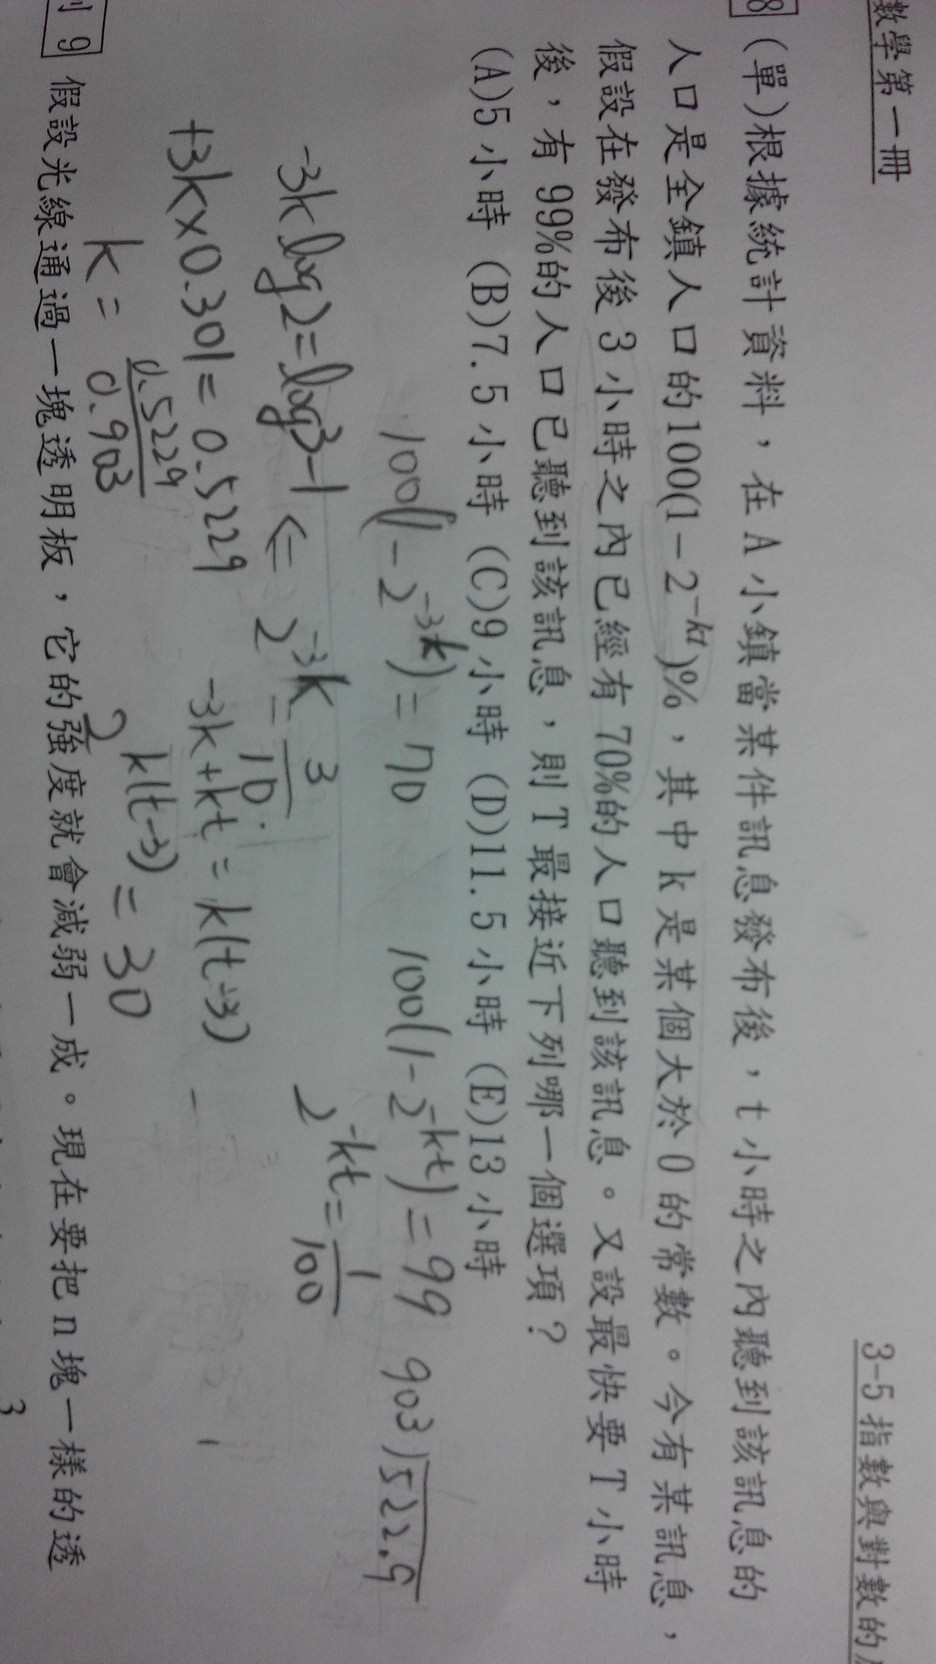 數學第一冊
3-5 指數與對數的
8 (單)根據統計資料，在 A 小鎮當某件訊息發布後，t 小時之內聽到該訊息的
人口是全鎮人口的100(1－2^{-kt})%，其中 k 是某個大於 0 的常數。今有某訊息，
假設在發布後 3 小時之內已經有 70%的人口聽到該訊息。又設最快要 T 小時
後，有 99%的人口已聽到該訊息，則 T 最接近下列哪一個選項？
(A)5 小時 (B)7.5 小時 (C)9 小時 (D)11.5 小時 (E)13 小時
100(1-2^{-3k})=70
100(1-2^{-kt})=99
903)522.9
-3k log2=log3-1 ⇐ 2^{-3k}=3/10
2^{-kt}=1/100
+3k×0.301=0.5229
-3k+kt=k(t-3)
k=0.5229/0.903
2^{k(t-3)}=30
例 9 假設光線通過一塊透明板，它的強度就會減弱一成。現在要把 n 塊一樣的透
3